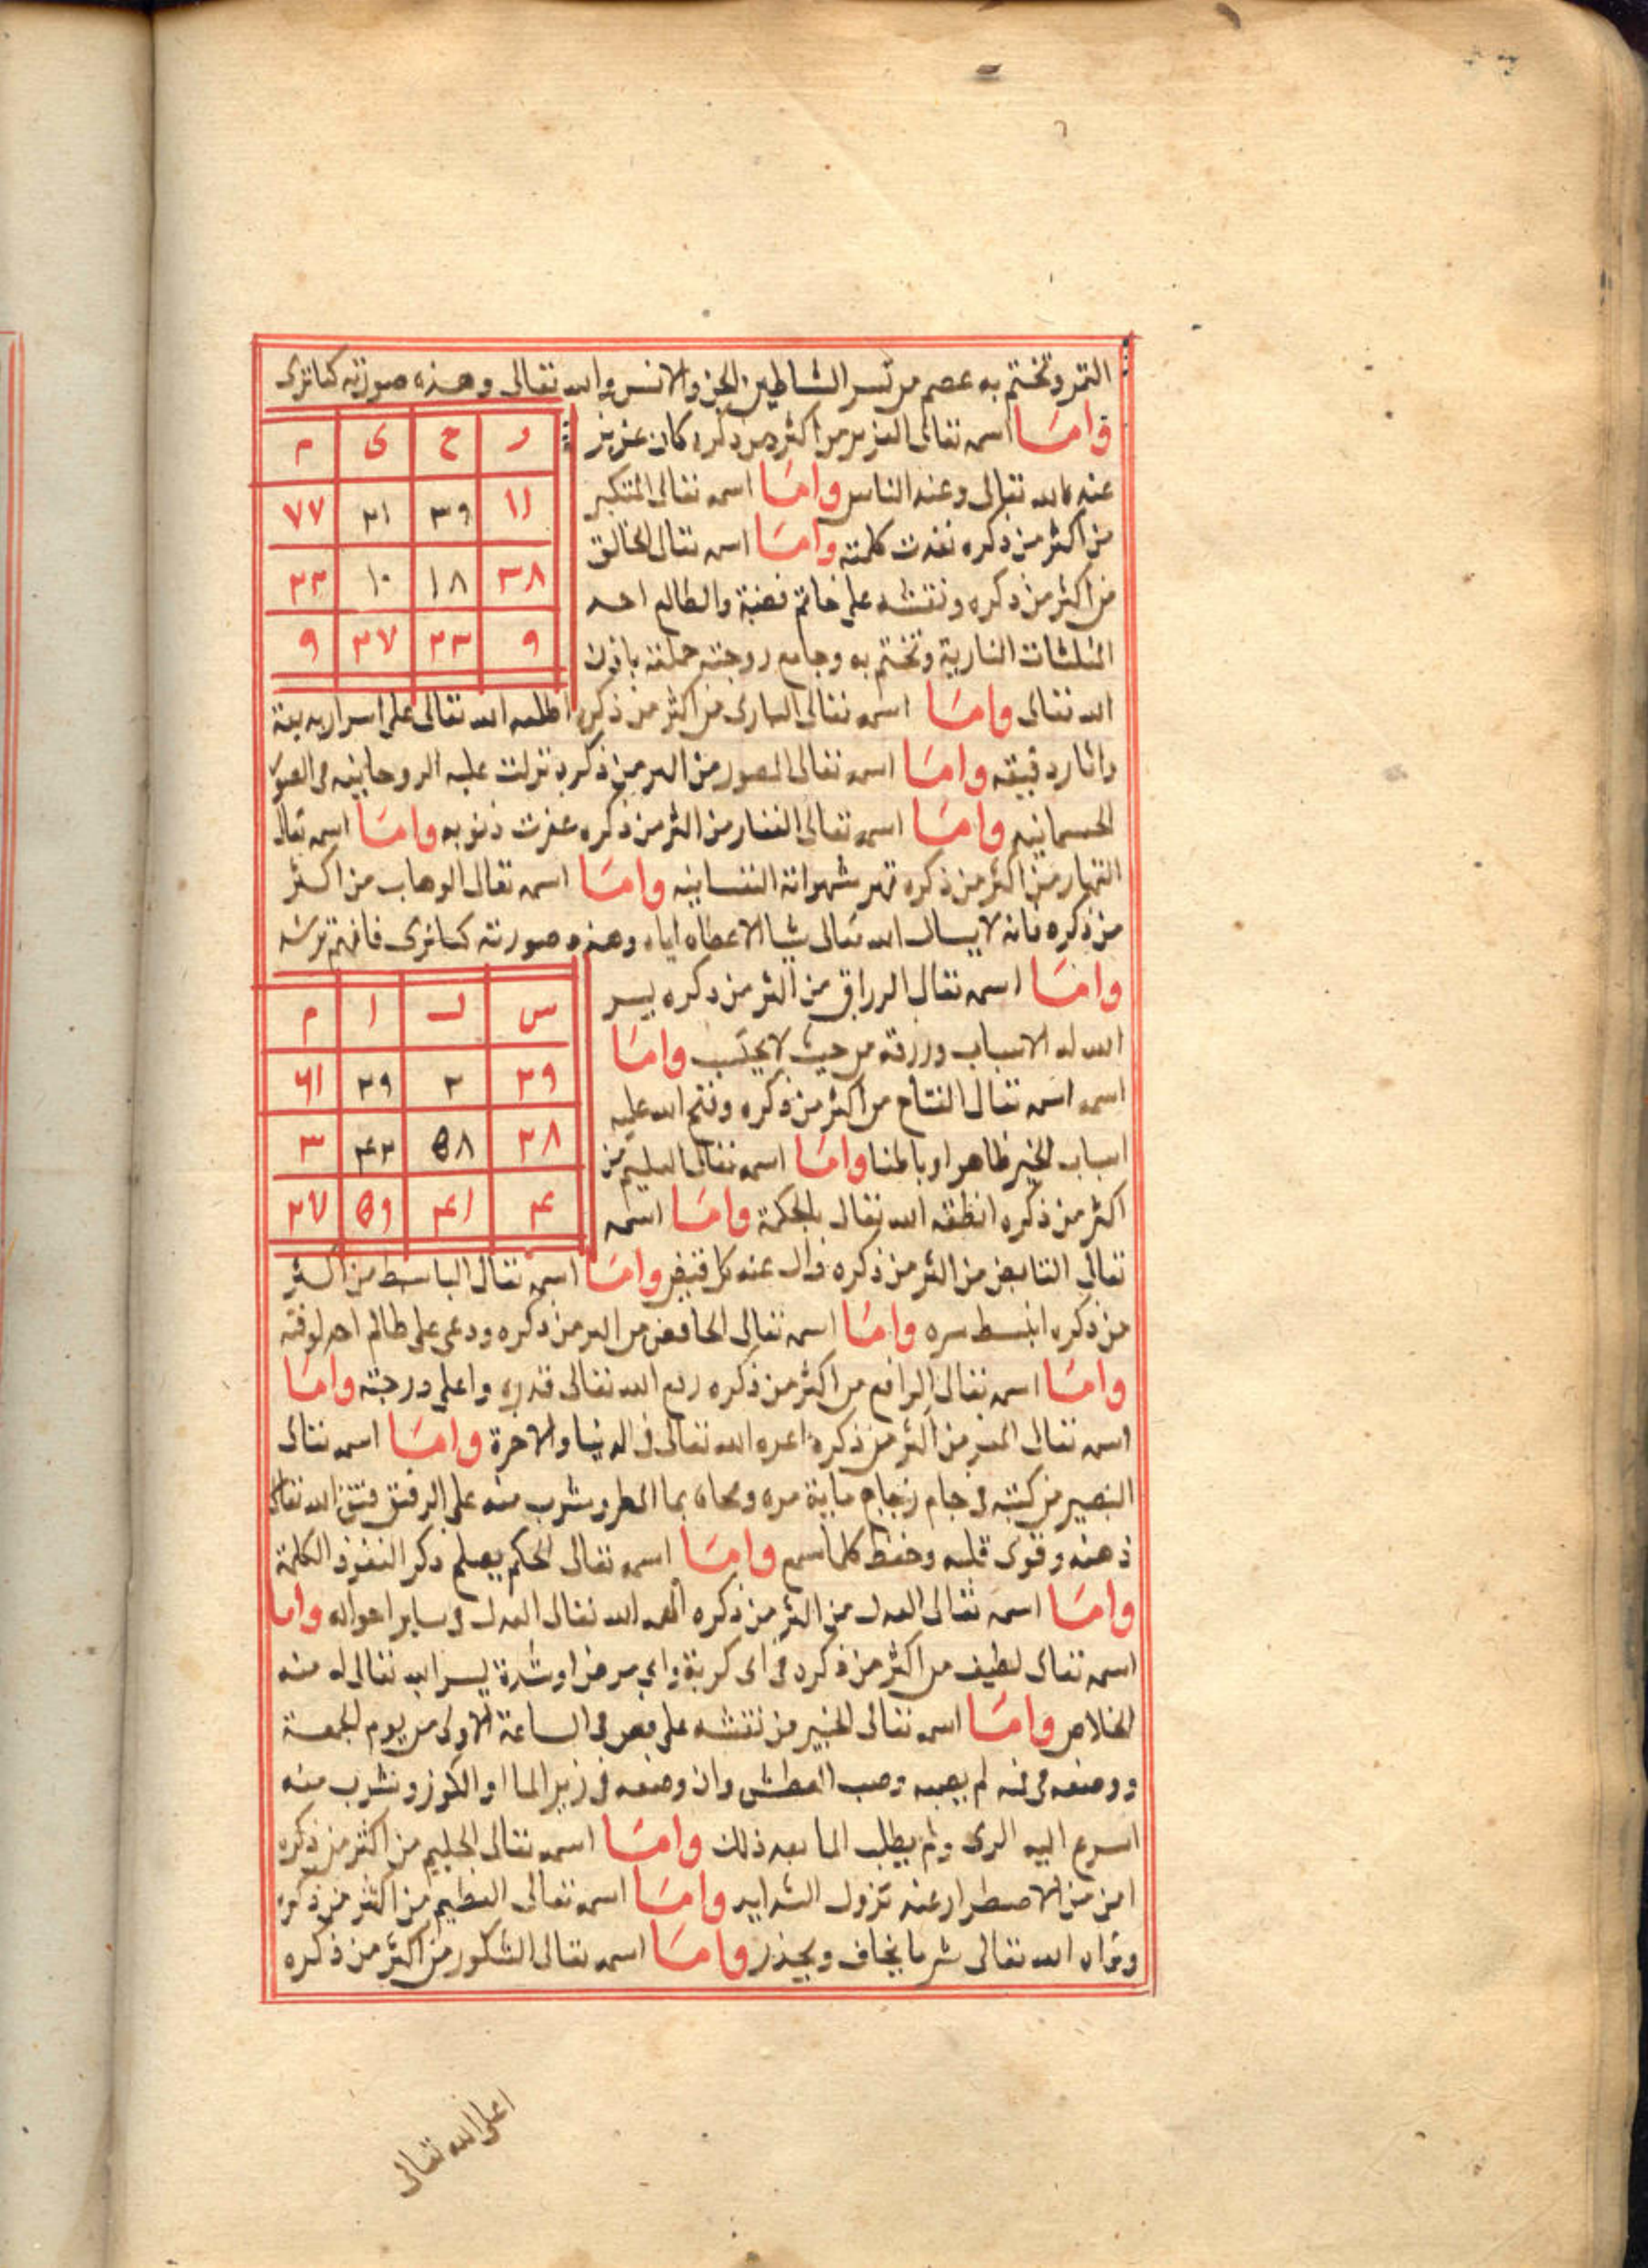 القمر وتختم به عصم من شر الشياطين الجن والانس والله تعالى وهذه صورته كما ترى
واما اسمه تعالى العزيز من اكثر من ذكره كان عزيز
عند الله تعالى وعند الناس واما اسمه تعالى المتكبر
من اكثر من ذكره نفذت كلمته واما اسمه تعالى الخالق
من اكثر من ذكره ونقشه على خاتم فضة والطالع احد
المثلثات النارية وتختم به وجامع زوجته حملت باذن
الله تعالى واما اسمه تعالى البارى من اكثر من ذكره اطلعه الله تعالى على اسرار بديعة
واثار دقيقه واما اسمه تعالى المصور من اكثر من ذكره تنزلت عليه الروحانيه فى الصور
الجسمانيه واما اسمه تعالى الغفار من اكثر من ذكره غفرت ذنوبه واما اسمه تعالى
القهار من اكثر من ذكره قهر شهواته النفسانيه واما اسمه تعالى الوهاب من اكثر
من ذكره فانه لا يسال الله تعالى شيا الا عطاه اياه وهذه صورته كما ترى فافهم ترشد
ر ح ى م
١١ ٣٩ ٢١ ٧٧
٣٨ ١٨ ١٠ ٢٢
٩ ٢٣ ٣٧ ٩
واما اسمه تعالى الرزاق من اكثر من ذكره يسر
الله له الاسباب ورزقه من حيث لا يحتسب واما
اسمه اسمه تعالى الفتاح من اكثر من ذكره وفتح الله عليه
اسباب الخير ظاهرا وباطنا واما اسمه تعالى العليم من
اكثر من ذكره انطقه الله تعالى بالحكمة واما اسمه
س ل ا م
٢٩ ٢ ٣٩ ٦١
٢٨ ٥٨ ٤٢ ٣
٤ ٤١ ٥٩ ٢٧
تعالى القابض من اكثر من ذكره زال عنه كل قبض واما اسمه تعالى الباسط من اكثر
من ذكره انبسط سره واما اسمه تعالى الخافض من اكثر من ذكره ودعى على ظالم اخذ لوقته
واما اسمه تعالى الرافع من اكثر من ذكره رفع الله تعالى قدره واعلى درجته واما
اسمه تعالى المعز من اكثر من ذكره اعزه الله تعالى فى الدنيا والاخرة واما اسمه تعالى
البصير من كتبه فى جام زجاج ماية مره ومحاه بما المطر وشرب منه على الريق فتق الله تعالى
ذهنه وقوى قلبه وحفظ كلما سمع واما اسمه تعالى الحكم يصلح ذكر النفوذ الكلمة
واما اسمه تعالى العدل من اكثر من ذكره الهمه الله تعالى العدل فى ساير احواله واما
اسمه تعالى لطيف من اكثر من ذكره فى اى كربة واى مرض او شدة يسر الله تعالى له منه
الخلاص واما اسمه تعالى الخبير من نقشه على فص فى الساعة الاولى من يوم الجمعة
ووضعه فى فيه لم يصبه وصب العطش وان وضعه فى زير الما او الكوز وشرب منه
اسرع اليه الرى ولم يطلب الما بعد ذلك واما اسمه تعالى الحليم من اكثر من ذكره
امن من الاضطرار عند نزول الشدايد واما اسمه تعالى العظيم من اكثر من ذكره
وقراه الله تعالى شر ما يخاف ويحذر واما اسمه تعالى الشكور من اكثر من ذكره
اعلى الله تعالى